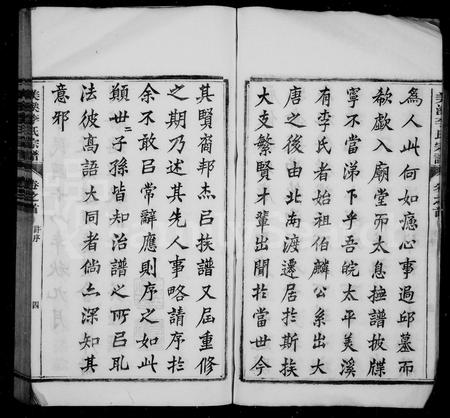 美溪李氏宗譜
為人此何如癋心事過邱墓而
欷歔入廟堂而太息撫譜披牒
寧不當涕下乎吾皖太平美溪
有李氏者始祖伯麟公系出大
唐之後由北南渡遷居於斯挨
大支繁賢才輩出聞於當世今
其賢裔邦杰㠯挨譜又屆重修
之期乃述其先人事略請序於
余不敢㠯常辭應則序之如此
願世二子孫皆知治譜之所㠯
法彼高語大同者倘亦深知其
意邪
美溪李氏宗譜
卷之首
序
四